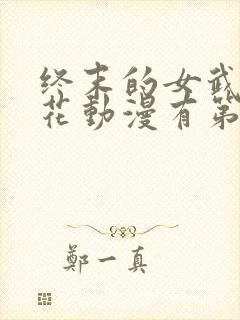 终末的女武
花動漫有第
鄭一真